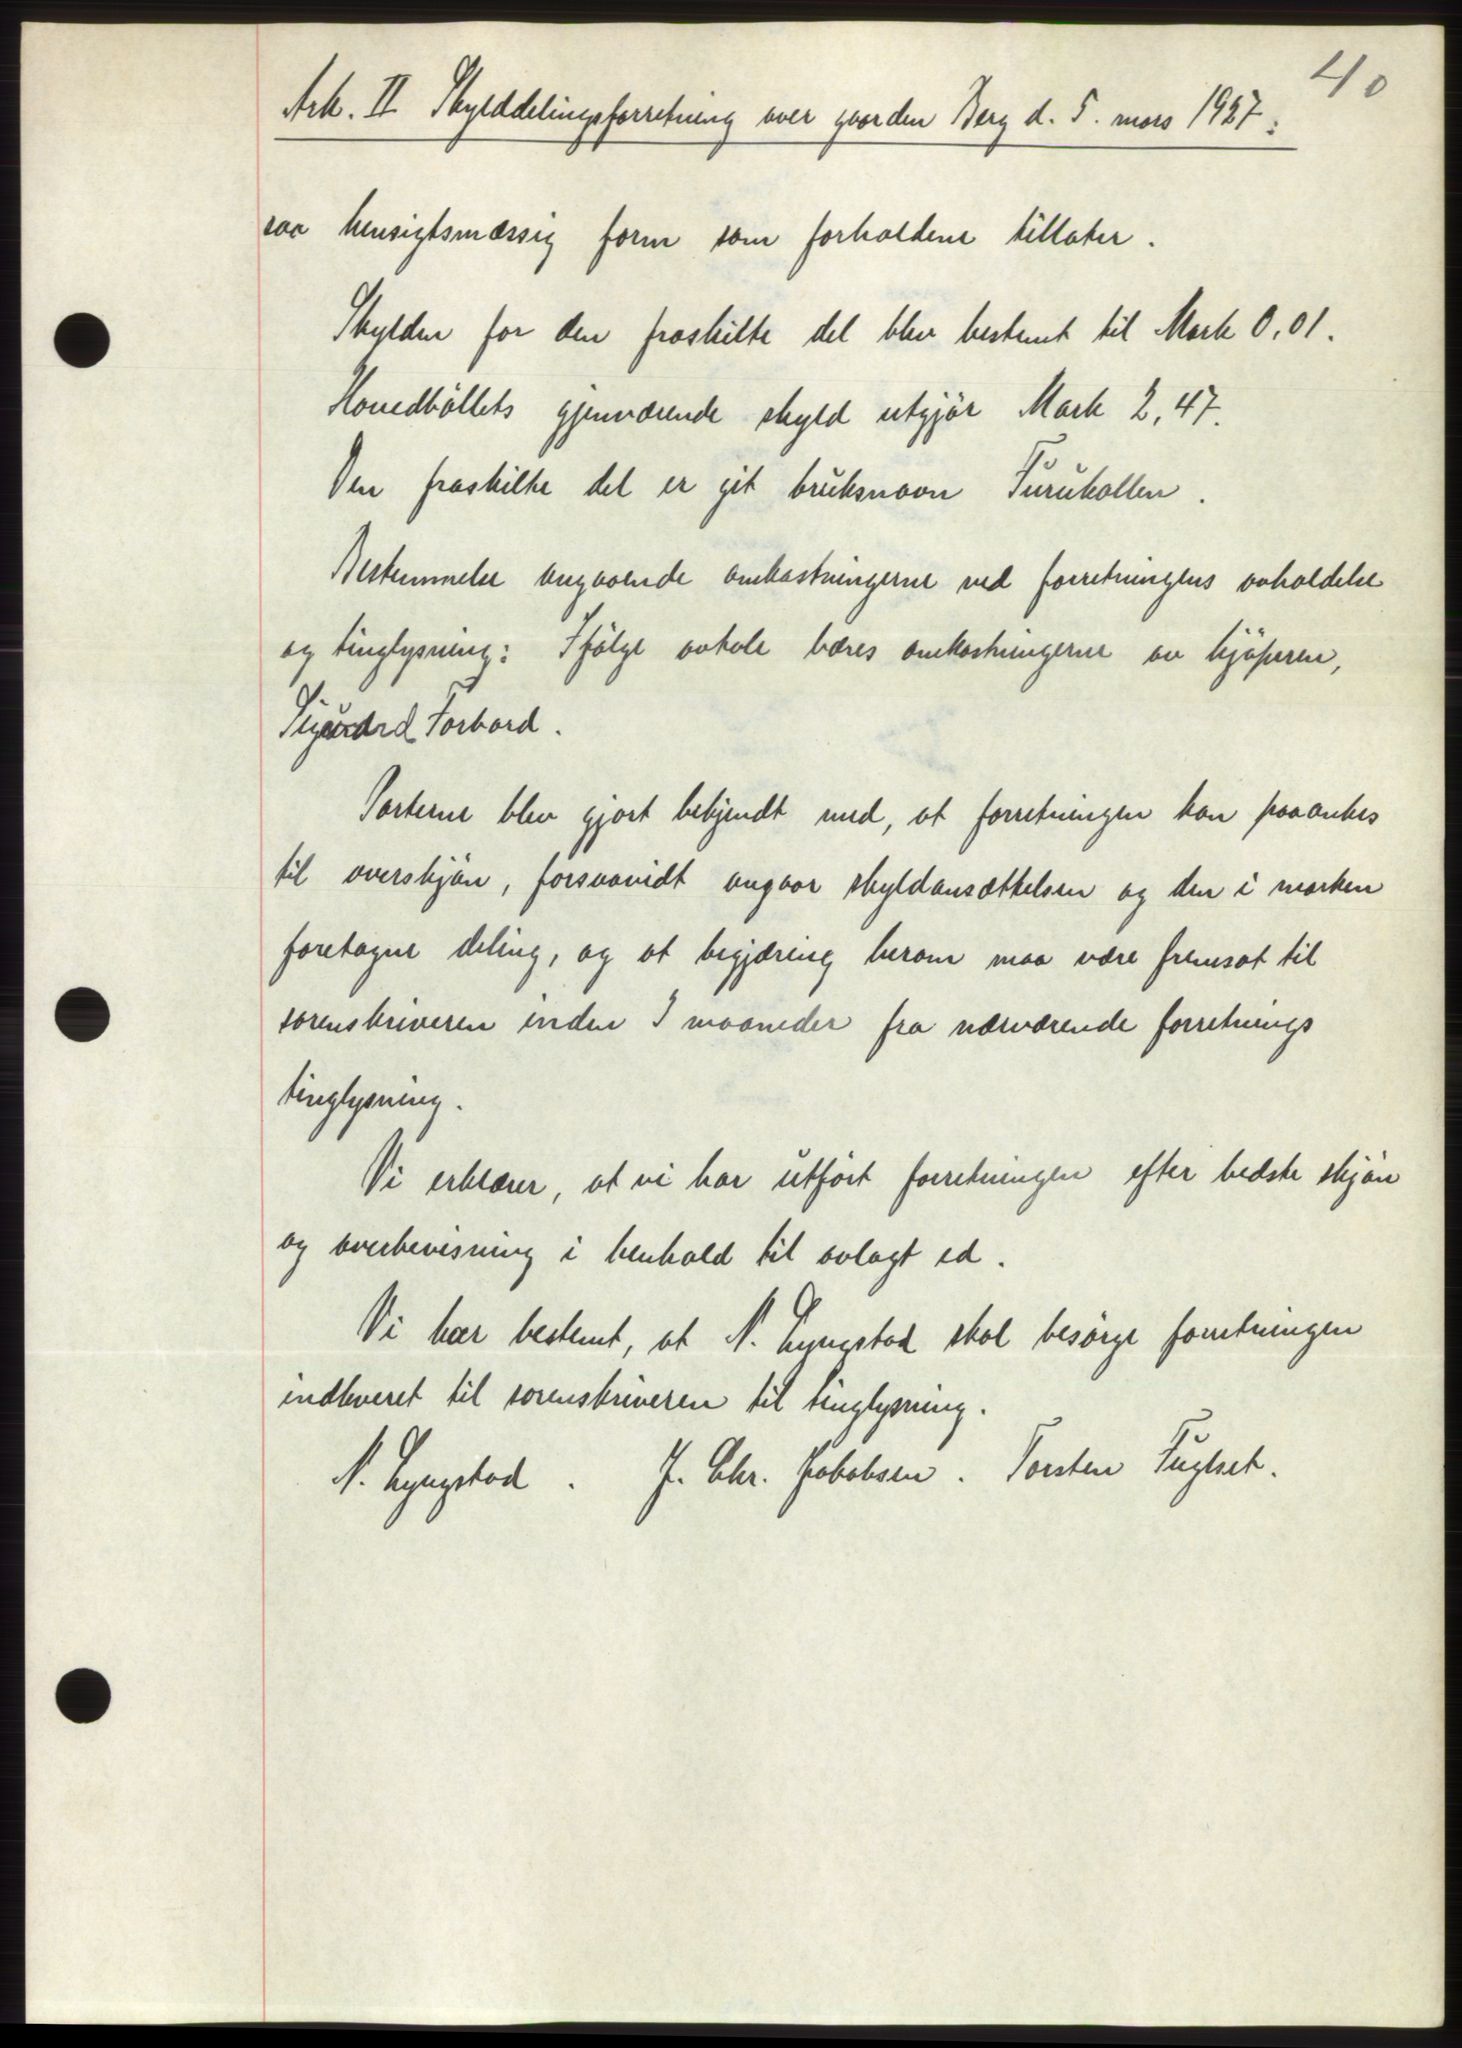 40
Ark. II Skylddelingsforretning over gaarden Berg d. 5. mars 1927:
saa hensigtsmæssig form som forholdene tillater.
Skylden for den fraskilte del blev bestemt til Mark 0,01.
Hovedbölets gjenværende skyld utgjör Mark 2,47.
Den fraskilte del er git bruksnavn Furukollen.
Bestemmelse angaaende omkostningerne ved forretningens avholdelse
og tinglysning: Ifölge avtale bæres omkostningerne av kjöperen,
Sigurd Forbord.
Parterne blev gjort bekjendt med, at forretningen kan paaankes
til overskjön, forsaavidt angaar skyldansættelsen og den i marken
foretagne deling, og at begjæring herom maa være fremsat til
sorenskriveren inden 3 maaneder fra nærværende forretnings
tinglysning.
Vi erklærer, at vi har utfört forretningen efter bedste skjön
og overbevisning i henhold til avlagt ed.
Vi har bestemt, at N. Lyngstad skal besörge forretningen
indleveret til sorenskriveren til tinglysning.
N. Lyngstad. J. Chr. Jakobsen. Torsten Fuglset.